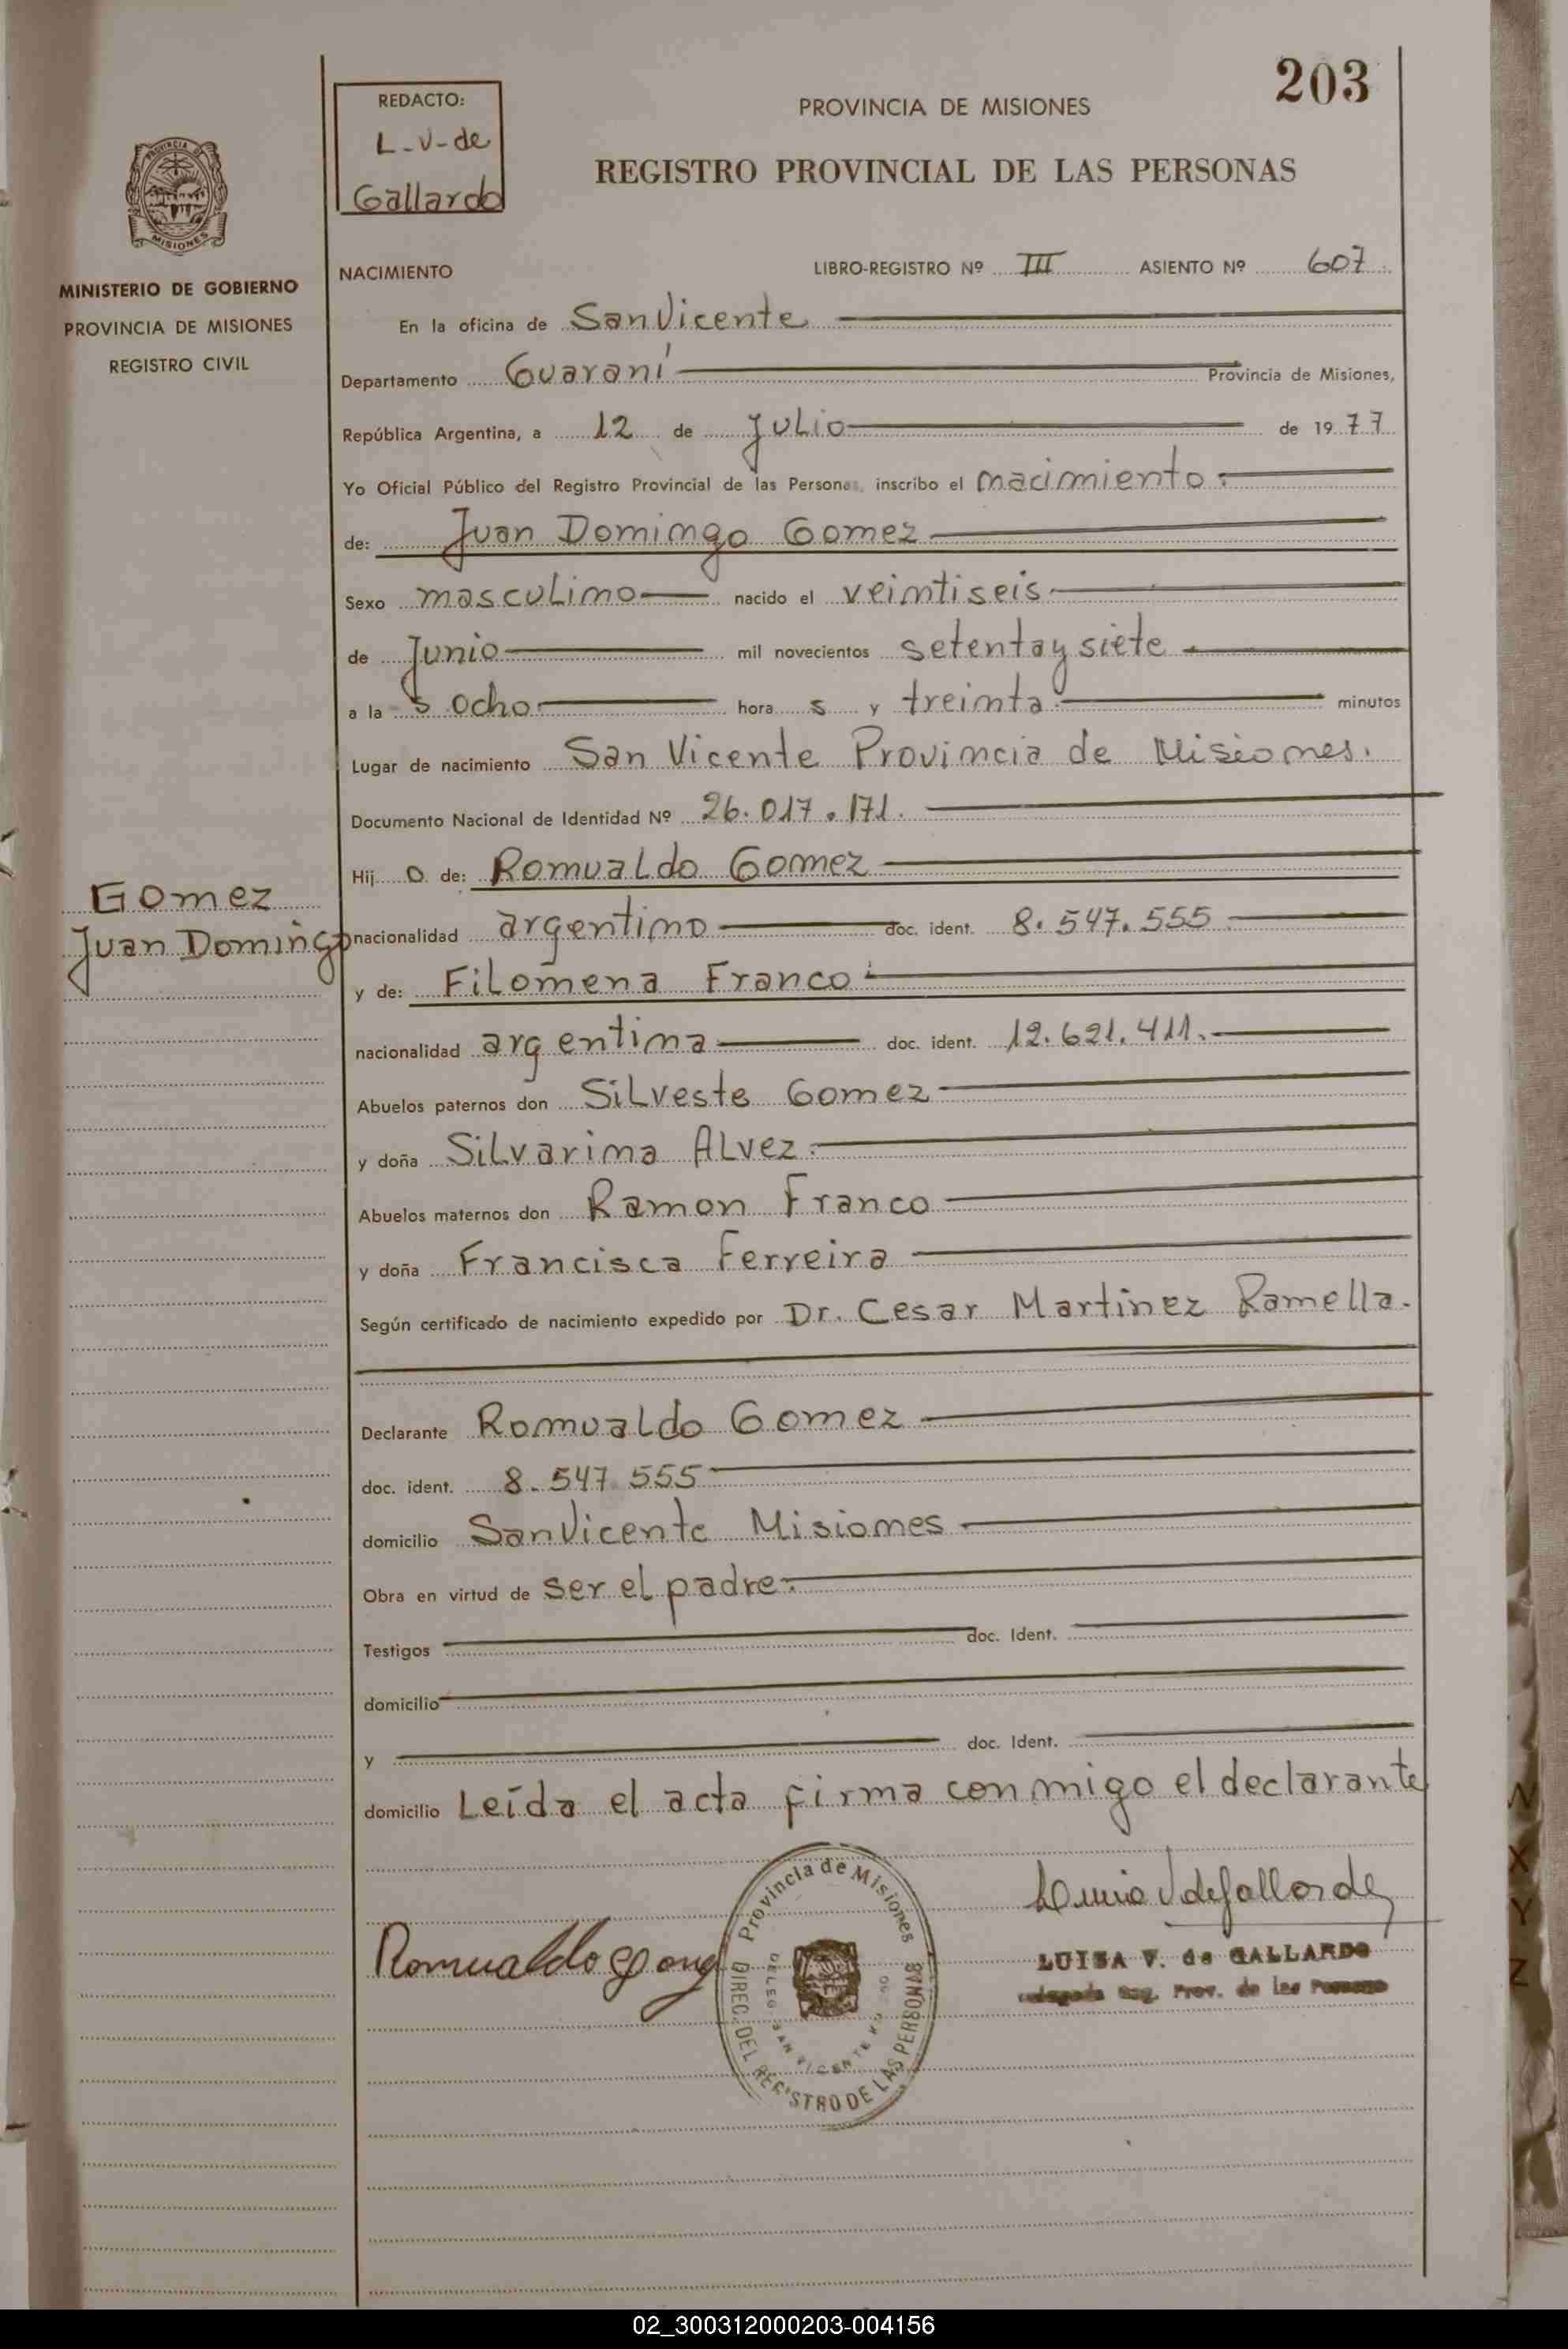 203
REDACTO:
L-V-de
Gallardo
PROVINCIA DE MISIONES
REGISTRO PROVINCIAL DE LAS PERSONAS
MISIONES
MINISTERIO DE GOBIERNO
PROVINCIA DE MISIONES
REGISTRO CIVIL
NACIMIENTO LIBRO-REGISTRO Nº III ASIENTO Nº 607
En la oficina de San Vicente
Departamento Guaraní Provincia de Misiones,
República Argentina, a 12 de Julio de 1977
Yo Oficial Público del Registro Provincial de las Personas, inscribo el nacimiento
de: Juan Domingo Gomez
Sexo masculino nacido el veintiseis
de Junio mil novecientos setenta y siete
a la s ocho hora s y treinta minutos
Lugar de nacimiento San Vicente Provincia de Misiones.
Documento Nacional de Identidad Nº 26.017.171.
Hij o de: Romualdo Gomez
Gomez
Juan Domingo
nacionalidad argentino doc. ident. 8.547.555
y de: Filomena Franco
nacionalidad argentina doc. ident. 12.621.411.
Abuelos paternos don Silveste Gomez
y doña Silvarina Alvez
Abuelos maternos don Ramon Franco
y doña Francisca Ferreira
Según certificado de nacimiento expedido por Dr. Cesar Martinez Ramella.
Declarante Romualdo Gomez
doc. ident. 8.547 555
domicilio San Vicente Misiones
Obra en virtud de ser el padre
Testigos doc. Ident.
domicilio
y doc. Ident.
domicilio Leída el acta firma conmigo el declarante
Provincia de Misiones
DIREC. DEL REGISTRO DE LAS PERSONAS
DELEG. SAN VICENTE
Romualdo
LUISA V. de GALLARDO
Delegada Reg. Prov. de las Personas
02_300312000203-004156